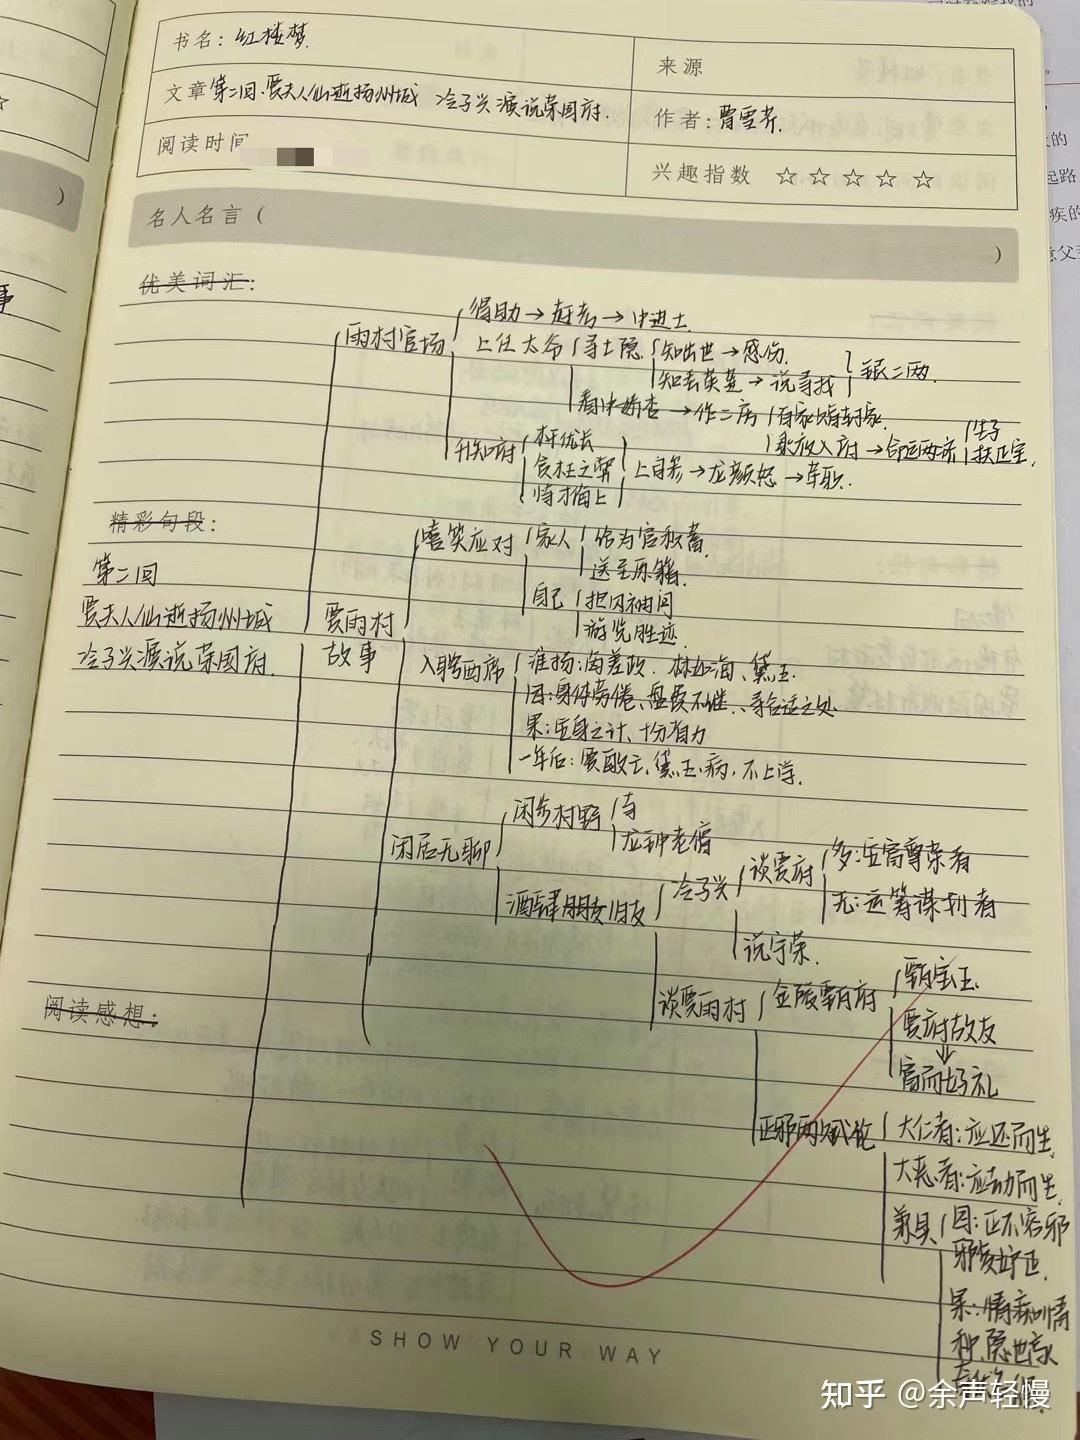 书名：红楼梦
来源
文章 第二回.贾夫人仙逝扬州城 冷子兴演说荣国府.
作者：曹雪芹.
阅读时间
兴趣指数 ☆☆☆☆☆
名人名言（ ）
优美词汇：
得助→赶考→中进士.
雨村官场
上任太爷 寻士隐 知出世→感伤.
知丢英莲→说寻找 银二两.
看中娇杏→作二房
乘夜入府→命运两济 生子
扶正室.
升知府 才干优长
贪枉之弊 上自参→龙颜怒→革职.
恃才侮上
精彩句段：
嘻笑应对 家人 给为官积蓄.
送至原籍.
第二回
自己
贾夫人仙逝扬州城
贾雨村
游览胜迹.
冷子兴演说荣国府.
故事
入聘西席 淮扬：
林如海、黛玉.
因：身体劳倦、盘费不继、寻合适之处
果：安身之计、十分省力
一年后：贾敏亡、黛玉病，不上学.
闲居无聊 闲步村野 寺
龙钟老僧
酒肆
旧友 冷子兴 谈贾府 多：安富尊荣者
无：运筹谋划者
说宁荣.
阅读感想：
谈贾雨村 金陵甄府 甄宝玉.
贾府故友
⇓
富而好礼
正邪两赋论 大仁者：应运而生.
大恶者：应劫而生.
兼具 因：正不容邪
邪复妒正.
果：情痴情
种、逸士高人
SHOW YOUR WAY
知乎 @余声轻慢